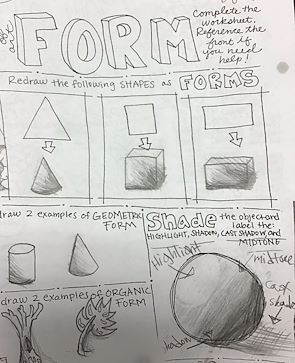 FORM
Complete the
worksheet.
Reference the
front if
you need
help!
Redraw the following SHAPES as FORMS
draw 2 examples of GEOMETRIC
FORM
Shade the object and
label the:
HIGHLIGHT, SHADOW, CAST SHADOW and
MIDTONE
Highlight
midtone
Cast
shadow
shadow
draw 2 examples of ORGANIC
FORM